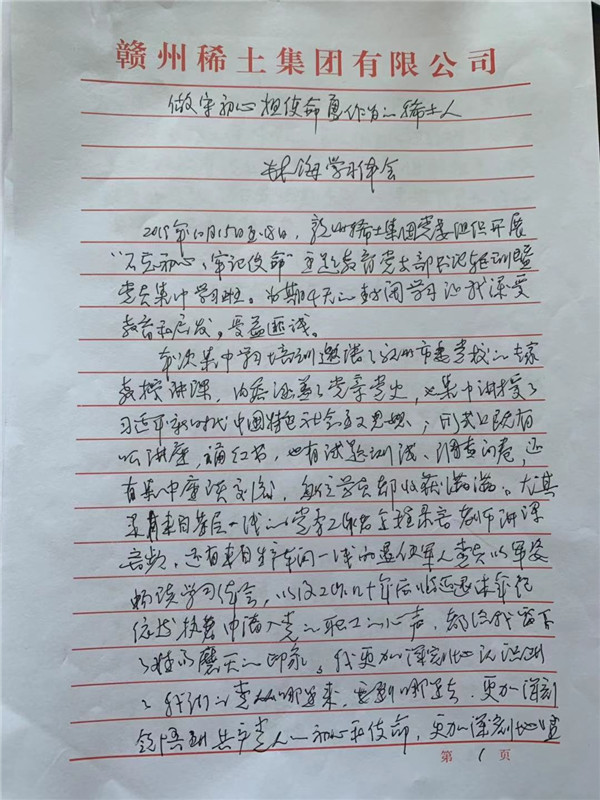 赣州稀土集团有限公司
做守初心担使命勇作为的稀土人
学习体会
2019年10月15日至18日，赣州稀土集团党委组织开展
“不忘初心、牢记使命”主题教育党支部书记轮训暨
党员集中学习班。为期4天的封闭学习让我深受
教育和启发，受益匪浅。
本次集中学习培训邀请了赣州市委党校的专家
教授讲课，内容涵盖了党章党史，也集中讲授了
习近平新时代中国特色社会主义思想；形式上既有
听讲座，诵红书，也有试题测试、调查问卷，还
有集中座谈交流，每位学员都收获满满。尤其
是有来自基层一线的党务工作者全程录音老师讲课
音频，还有来自生产车间一线的退伍军人党员以军姿
畅谈学习体会，以及工作几十年后临近退休年纪
依然执着申请入党的职工的心声，都给我留下
了特别磨灭的印象。我更加深刻地认识到
了我们的党从哪里来，要到哪里去，更加深刻
领悟到共产党人的初心和使命，更加深刻地
第1页